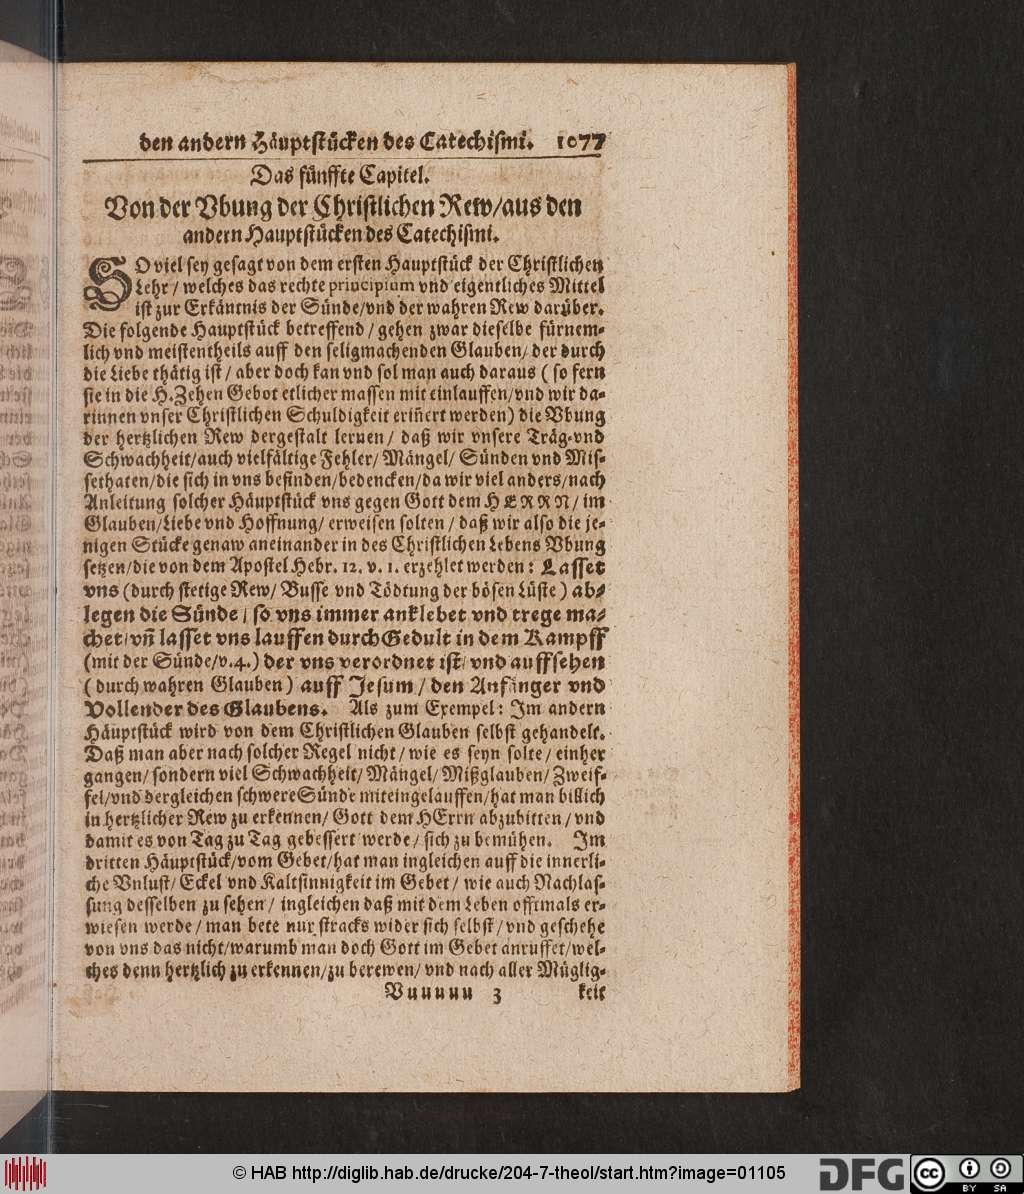 den andern Häuptstücken des Catechismi. 1077
Das fünffte Capitel.
Von der Vbung der Christlichen Rew/aus den
andern Hauptstücken des Catechismi.
SO viel sey gesagt von dem ersten Hauptstück der Christlichen
Lehr / welches das rechte principium vnd eigentliches Mittel
ist zur Erkäntnis der Sünde/vnd der wahren Rew darüber.
Die folgende Hauptstück betreffend / gehen zwar dieselbe fürnem-
lich vnd meistentheils auff den seligmachenden Glauben/ der durch
die Liebe thätig ist / aber doch kan vnd sol man auch daraus ( so fern
sie in die H. Zehen Gebot etlicher massen mit einlauffen/vnd wir da-
rinnen vnser Christlichen Schuldigkeit erin̄ert werden) die Vbung
der hertzlichen Rew dergestalt lernen/ daß wir vnsere Träg-vnd
Schwachheit/auch vielfältige Fehler/ Mängel/ Sünden vnd Mis-
sethaten/die sich in vns befinden/bedencken/da wir viel anders/nach
Anleitung solcher Häuptstück vns gegen Gott dem HERRN/ im
Glauben/Liebe vnd Hoffnung/ erweisen solten / daß wir also die je-
nigen Stücke genaw aneinander in des Christlichen Lebens Vbung
setzen/die von dem Apostel Hebr. 12. v. 1. erzehlet werden: Lasset
vns (durch stetige Rew/ Busse vnd Tödtung der bösen Lüste) ab-
legen die Sünde / so vns immer anklebet vnd trege ma-
chet/vn̄ lasset vns lauffen durch Gedult in dem Kampff
(mit der Sünde/v.4.) der vns verordnet ist/ vnd auffsehen
(durch wahren Glauben) auff Jesum / den Anfänger vnd
Vollender des Glaubens. Als zum Exempel: Im andern
Häuptstück wird von dem Christlichen Glauben selbst gehandelt.
Daß man aber nach solcher Regel nicht / wie es seyn solte / einher
gangen/ sondern viel Schwachheit/ Mängel/ Mißglauben/ Zweif-
fel/vnd dergleichen schwere Sünde miteingelauffen/hat man billich
in hertzlicher Rew zu erkennen/ Gott dem HErrn abzubitten / vnd
damit es von Tag zu Tag gebessert werde / sich zu bemühen. Im
dritten Häuptstück/vom Gebet/hat man ingleichen auff die innerli-
che Vnlust/ Eckel vnd Kaltsinnigkeit im Gebet / wie auch Nachlas-
sung desselben zu sehen / ingleichen daß mit dem Leben offtmals er-
wiesen werde / man bete nur stracks wider sich selbst / vnd geschehe
von vns das nicht/warumb man doch Gott im Gebet anruffet/wel-
ches denn hertzlich zu erkennen/zu berewen/ vnd nach aller Müglig-
Vuuuuu 3 keit
© HAB http://diglib.hab.de/drucke/204-7-theol/start.htm?image=01105
DFG
cc BY SA